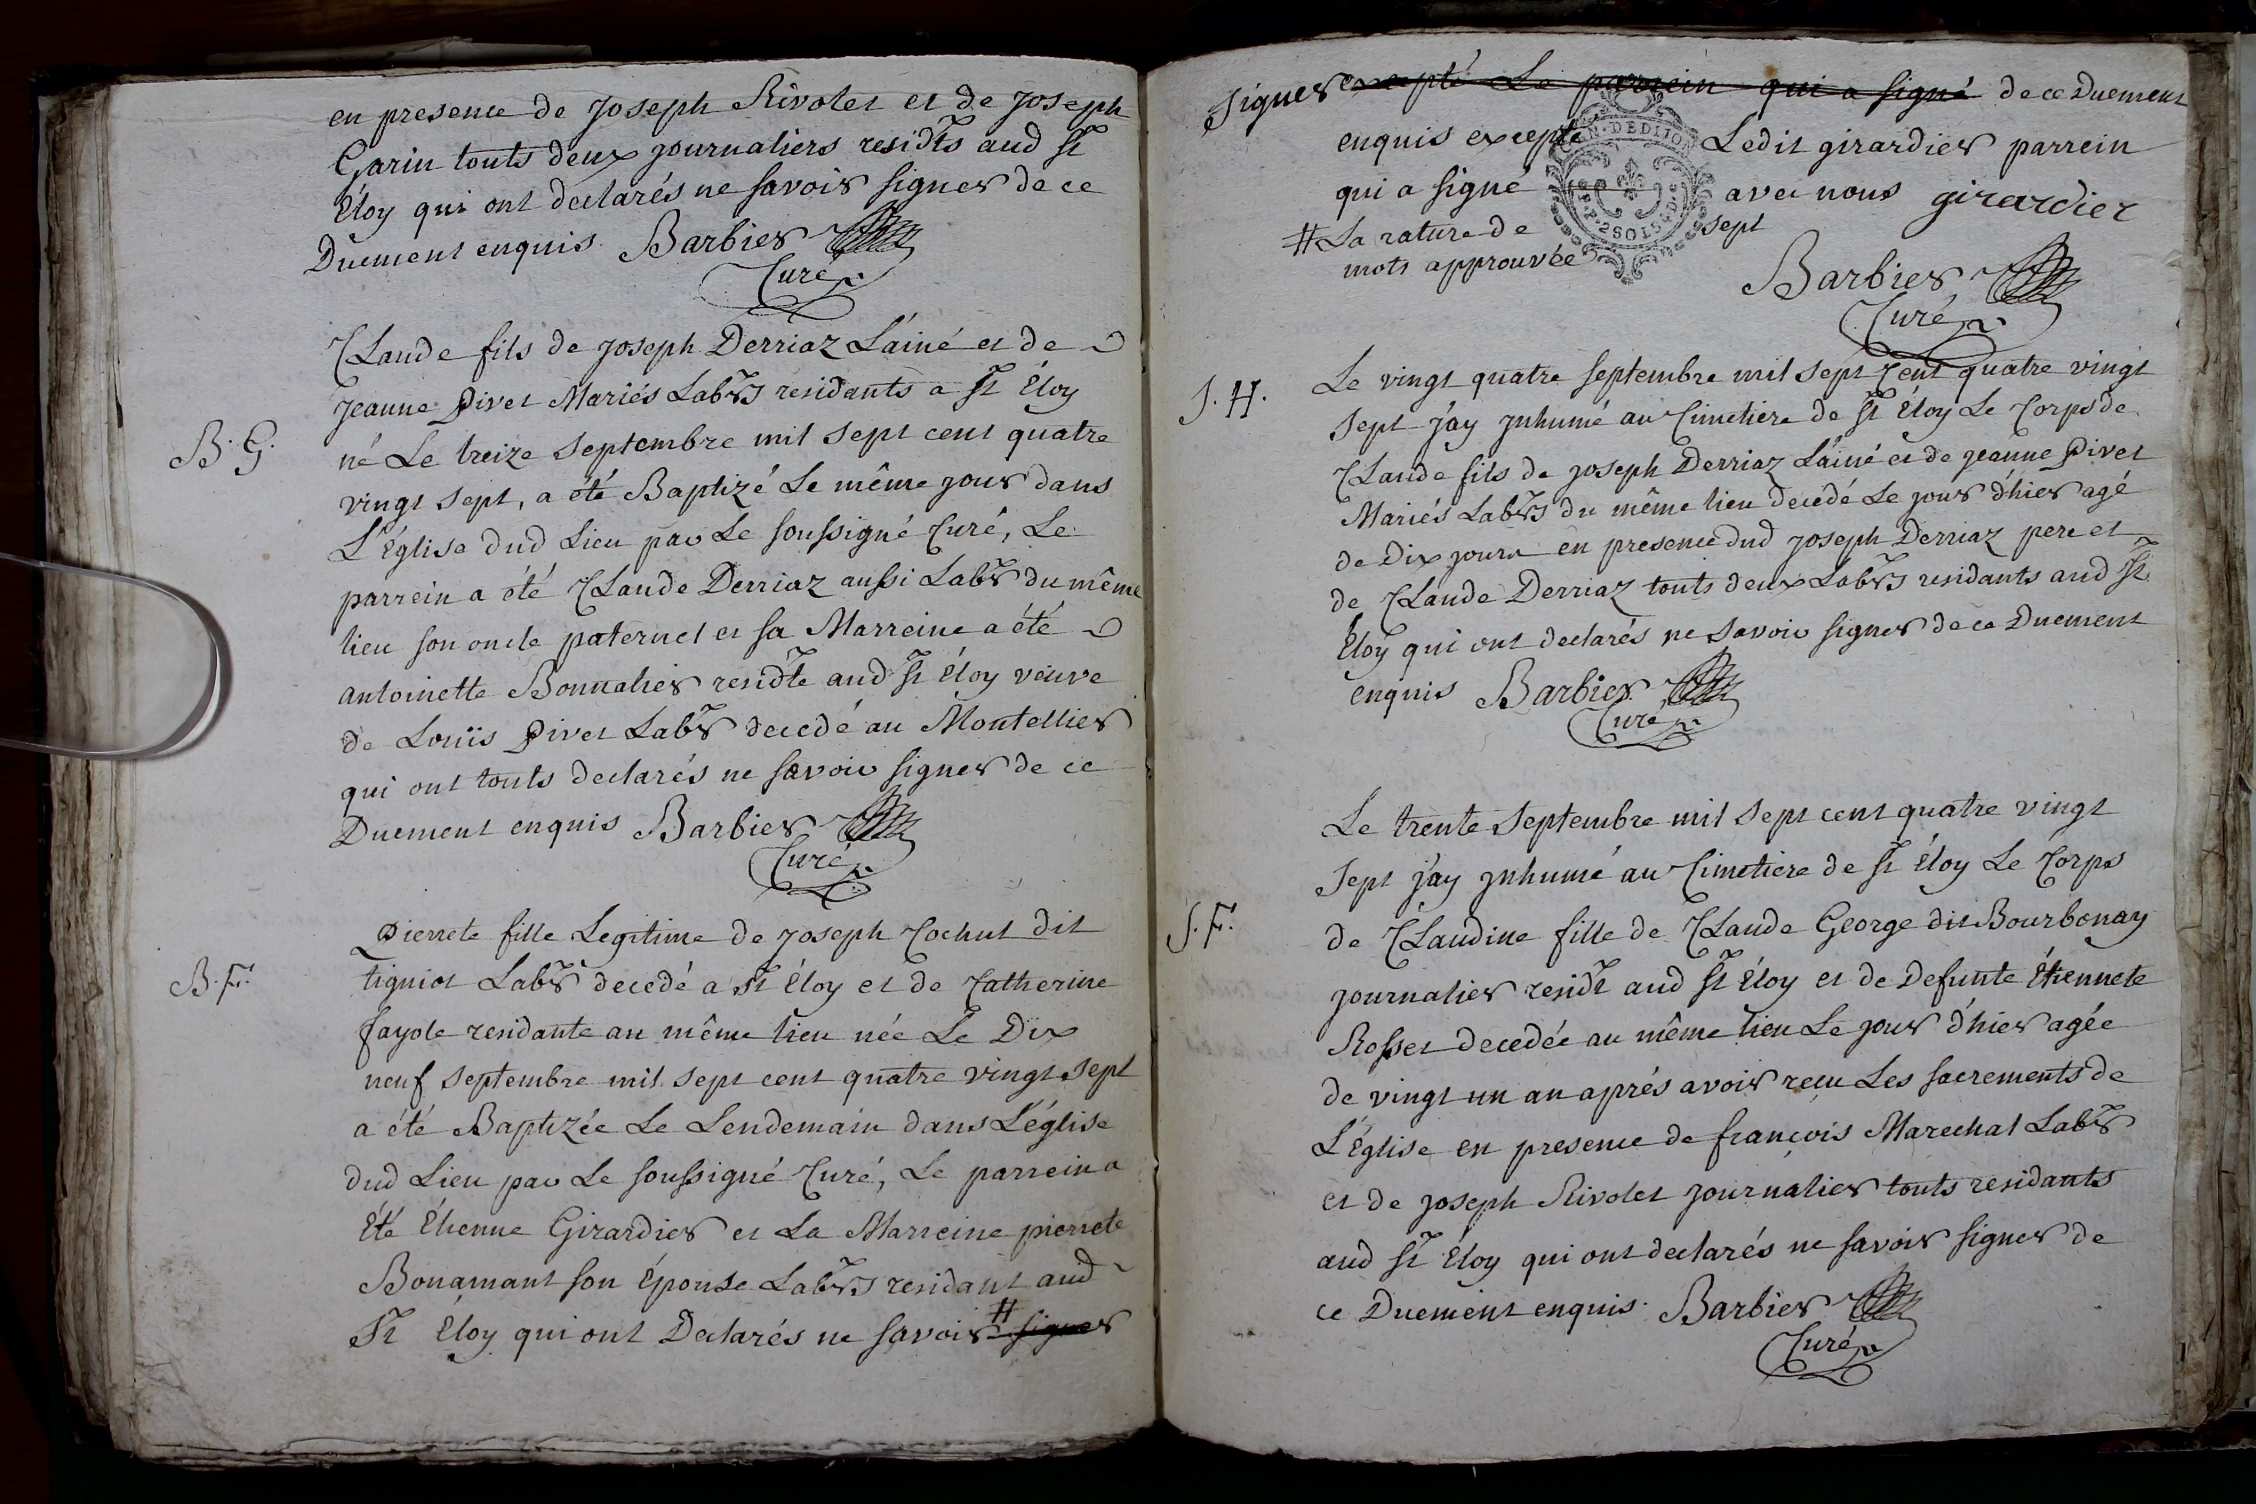 en presence de Joseph Rivolet et de Joseph
Garin touts deux journaliers residts aud St
Éloy qui ont declarés ne savoir signer de ce
Duement enquis. Barbier
Curé
Claude fils de Joseph Derriaz L'ainé et de
Jeanne Pivet Mariés Labrs residants a St Éloy
B. G.
né Le treize Septembre mil sept cent quatre
vingt sept, a été Baptizé Le même jour dans
L'Église dud Lieu par Le soussigné Curé, Le
parrein a été Claude Derriaz aussi Labr du même
lieu son oncle paternel et sa Marreine a été
antoinette Bonnalier residte aud St Éloy veuve
de Louïs Pivet Labr decedé au Montellier
qui ont touts declarés ne savoir signer de ce
Duement enquis Barbier
Curé
Pierrete fille Legitime de Joseph Cochut dit
B. F.
tigniot Labr decedé a St Éloy et de Catherine
fayole residante au même lieu née Le Dix
neuf Septembre mil sept cent quatre vingt sept
a été Baptizée Le Lendemain dans L'église
dud Lieu par Le soussigné Curé, Le parrein a
Été Étienne Girardier et La Marreine pierrete
Bonamant son Épouse Labrs residant aud
St Éloy qui ont Declarés ne savoir # signer
signer excepté Le parrein qui a signé de ce Duement
enquis excepté Ledit girardier parrein
qui a signé avec nous girardier
# La rature de sept
mots approuvée
GEN. DE DIJON
2 SOLS
Barbier
Curé
Le vingt quatre septembre mil sept cent quatre vingt
S. H.
sept j'ay jnhumé au Cimetiere de St Éloy Le Corps de
Claude fils de Joseph Derriaz L'ainé et de Jeanne Pivet
Mariés Labrs du même lieu decedé Le jour d'hier agé
de Dix jours en presence dud Joseph Derriaz pere et
de Claude Derriaz touts deux Labrs residants aud St
Éloy qui ont declarés ne savoir signer de ce Duement
enquis Barbier
Curé
Le trente Septembre mil sept cent quatre vingt
sept j'ay jnhumé au Cimetiere de St Éloy Le Corps
S. F.
de Claudine fille de Claude George dit Bourbonay
journalier residt aud St Éloy et de Defunte Étiennete
Rosset decedée au même lieu Le jour d'hier agée
de vingt un an aprés avoir reçu Les sacrements de
L'Église en presence de françois Marechal Labr
et de Joseph Rivolet journalier touts residants
aud St Éloy qui ont declarés ne savoir signer de
ce Duement enquis. Barbier
Curé